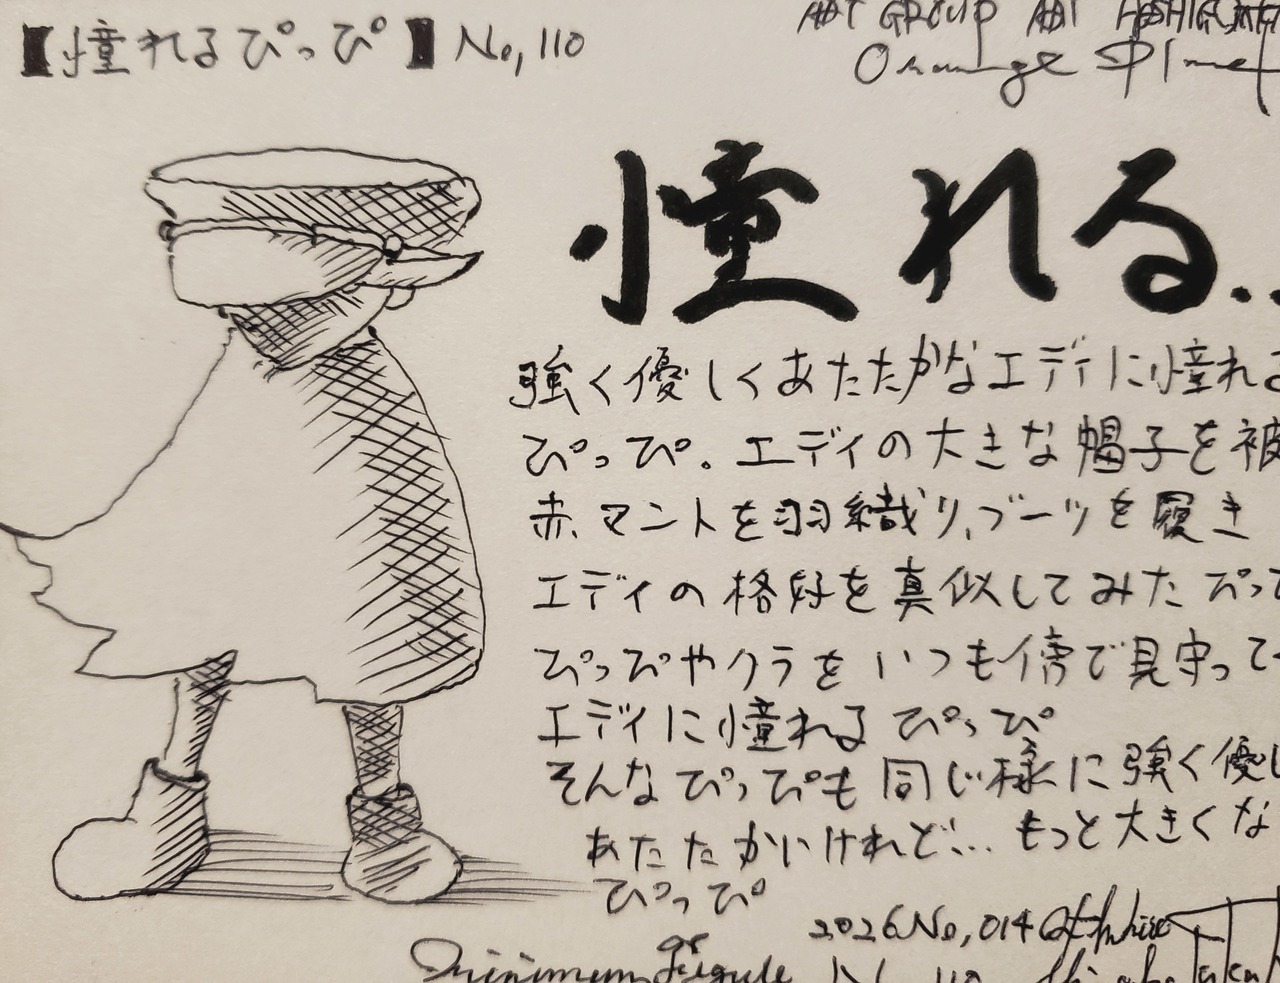 【憧れるぴっぴ】No,110
ART GROUP
Orange Planet
憧れる..
強く優しくあたたかなエディに憧れる
ぴっぴ。エディの大きな帽子を被
赤マントを羽織り、ブーツを履き
エディの格好を真似してみたぴっ
ぴっぴやクラをいつも傍で見守って
エディに憧れるぴっぴ
そんなぴっぴも同じ様に強く優し
あたたかいけれど... もっと大きくな
ぴっぴ
2026No,014
minimum figure No,110